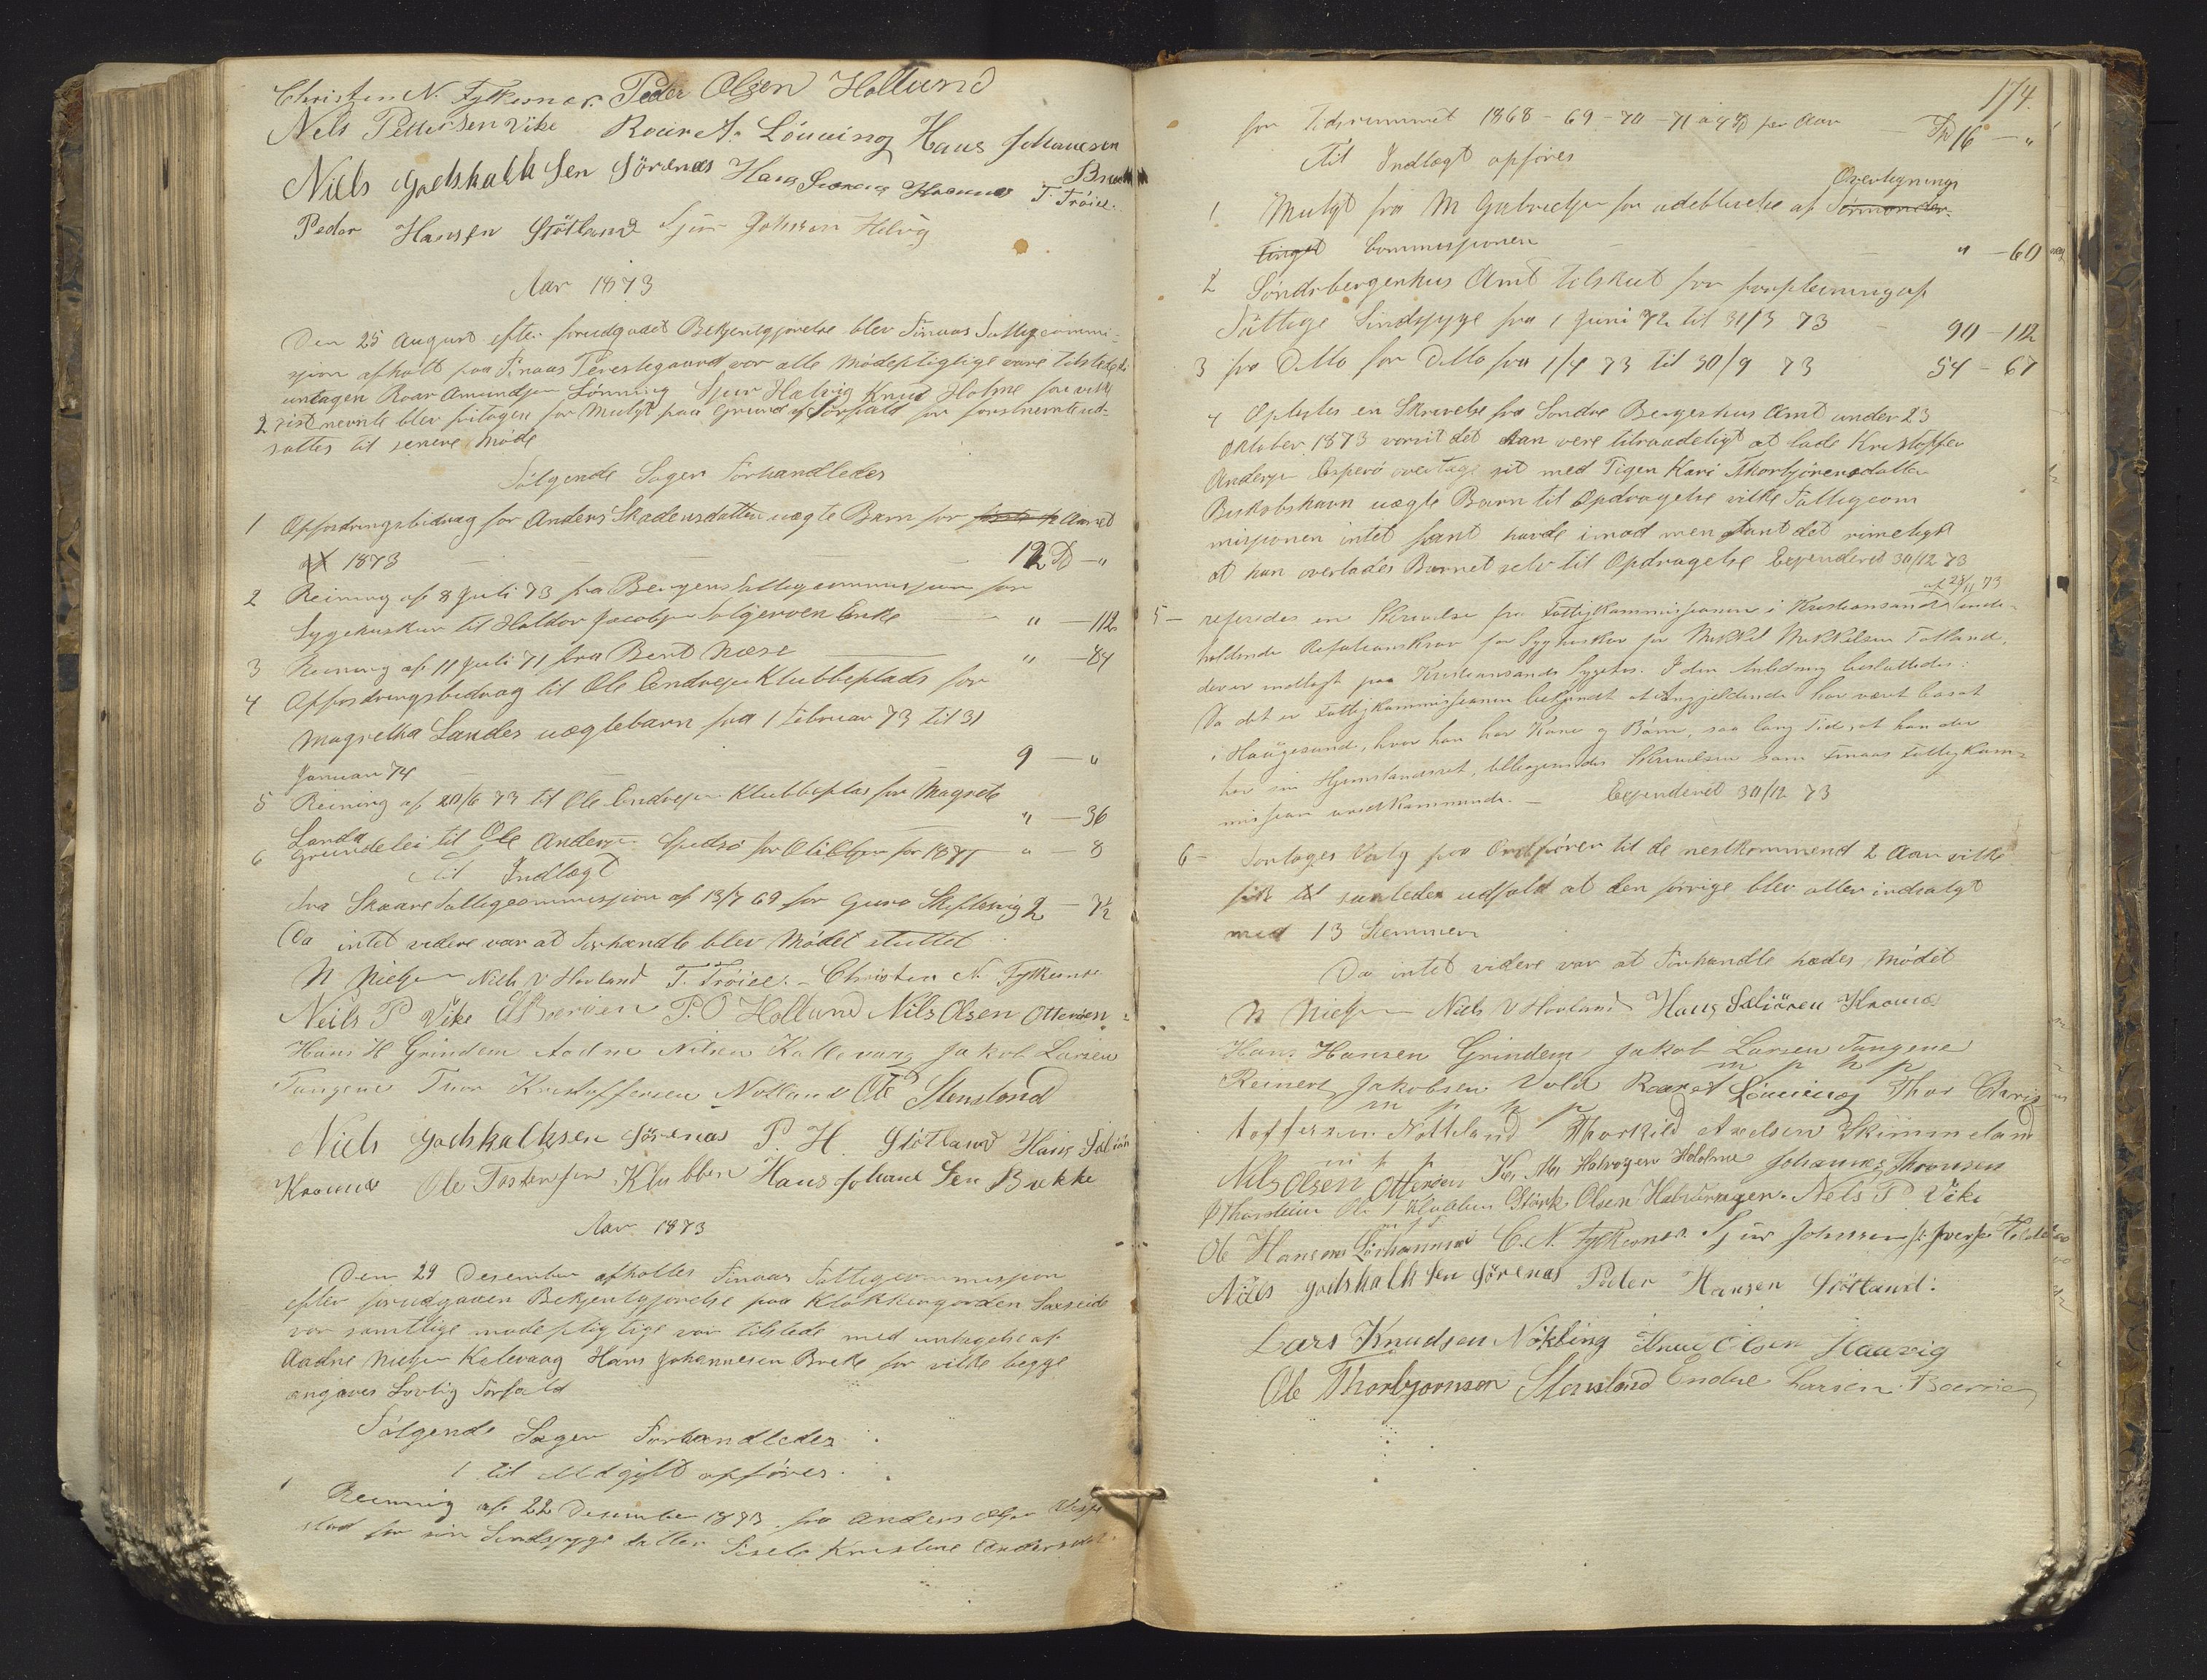 Christen N. Fylkesnes. Peder Olsen Hollund
Nels Pettersen Vike Roar A. Lönning Hans Johanesen
Niels Godskalksen Sörenes Hans Kraanes T. Tröien.
Peder Hansen Stötland Sjur Johnsen Helvig
Aar 1873
Den 25 August efter forudgaaet Bekjentgjörelse blev Finaas Fattigcommi-
sjon afholt paa Finaas Prestegaard vor alle Mödepligtige vare tilstede
untagen Roar Amundsen Lönning Sjur Helvig Knud Holme for vilke
2 sistnevnte blev fritagen for Mulgt paa Grund af Forfald for forstnevnte ud-
sattes til senere Möde
Fölgende Sager Forhandledes
1 Opfostringsbidrag for Anders Skadensdatten uægte Barn for Aaret
1873 12 D - "
2 Reining af 8 Juli 73 fra Bergens Fattigcommissjon for
Sygehuskur til Haldor Jacobsen Enke " - 112
3 Reining af 11 Juli 71 fra Bent Næse " - 84
4 Opfostringsbidrag til Ole Endresen Klubbeplads for
Magretha Landes uægtebarn fra 1 Februar 73 til 31
Januar 74 9 - "
5 Reining af 20/6 73 til Ole Endresen Klubbeplas for Magrete
Landa " - 36
6 Grundelei til Ole Andersen for Ole Olsen for 1871 " - 8
Til Indtægt
Fra Skaare Fattigcommissjon af 13/7 69 for Guro 2 - 72
Da intet videre var at Forhandle blev Mödet sluttet
N Nielsen Niels V Hovland T. Tröien. Christen N. Fylkesnes
Neils P Vike P. O Hollund Nils Olsen Ottersen
Hans H Grindem Aadne Nilsen Kallevaag Jakob Larsen
Tungene Thor Kristoffersen Notland Ole Stensland
Niels Godskalksen Sörenes P. H. Stötland Hans
Kraanes Ole Tostensen Klubben Hans Johanesen Brekke
Aar 1873
Den 29 Desember afholtes Finaas Fattigcommissjon
efter forudgaaen Bekjentgjörelse paa Klokkergaarden
vor samtlige mödepligtige var tilstede med untagelse af
Aadne Nielsen Kalevaag Hans Johannesen Breke for vilke begge
angaves Lovlig Forfald
Fölgende Sager Forhandledes
1 til Udgift opföres
1 Reining af 22 Desember 1873 fra Anders Olsen
stad for sin Sindssyge datter Sisele Kristine Andersdat
174.
for Tidsrummet 1868 - 69 - 70 - 71 a 4 D per Aar D 16 - "
Til Indtægt opföres
Overligning
1 Mulgt fra M Gabrielsen for udeblivelse af Formander
tinget Commissjonen " - 60
2 Söndrebergenhus Amt tilskut for forpleining af
Fattige Sindssyge fra 1 Juni 72 til 31/3 73 90 - 112
3 fra Ditto for Ditto fra 1/4 73 til 30/9 73 54 - 67
4 Oplestes en Skrivelse fra Söndre Bergenhus Amt under 23
Oktober 1873 vorvit det kan vere tilraadeligt at lade Kristoffer
Andersen Espevö overtage sit med Pigen Kari Thorbjörensdatter
Buskobshavn uægte Barn til Opdragelse vilke Fattigcom
missjonen intet fant havde imod men fant det rimeligst
at han overlades Barnet selv til Opdragelse Expenderet 30/12 73
5 - refererdes en Skrivelse fra Fattigkommissionen i Kristiansand af 28/11 73 inde-
holdende Refutionskrav for Sygehuskur for Mikkel Mikkelsen Totland,
der er indlagt paa Kristiansands Sygehus. I den Anledning besluttedes:
Da det er Fattigkommissionen bekjendt at Angjeldende har været bosat
i Haugesund, hvor han har Kone og Börn, saa lang Tid, at han der
har sin Hjemstavnsret, tilbagesendes Skrivelsen som Finaas Fattigkom-
mission uvedkommende. - Expenderet 30/12 73
6 - Fortages Valg paa Ordförer til de nestkommend 2 Aar vilke
fik saaledes udfald at den forrige blev atter indvalgt
med 13 Stemmer
Da intet videre var at Forhandle hædes Mödet
N Nielsen Niels V Hovland Hans Kraanes
Hans Hansen Grindem Jakob Larsen Tungene
m p p
Reinert Jakobsen Vold Roar A Lönning Thor Chris
toffersen Notteland Thorkild Axelsen Skimmeland
Nils Olsen Ottersen Halvorsen Holdme Johannes Thronsen
Ole T Klubben Störk Olsen Nels P Vike
Ole Hansen C. N. Fylkesnes. Sjur Johnsen
Niels Godskalksen Sörenes Peder Hansen Stötland:
Lars Knudsen Nökling Knut Olsen Haavig
Ole Thorbjornsen Stensland Endre Larsen